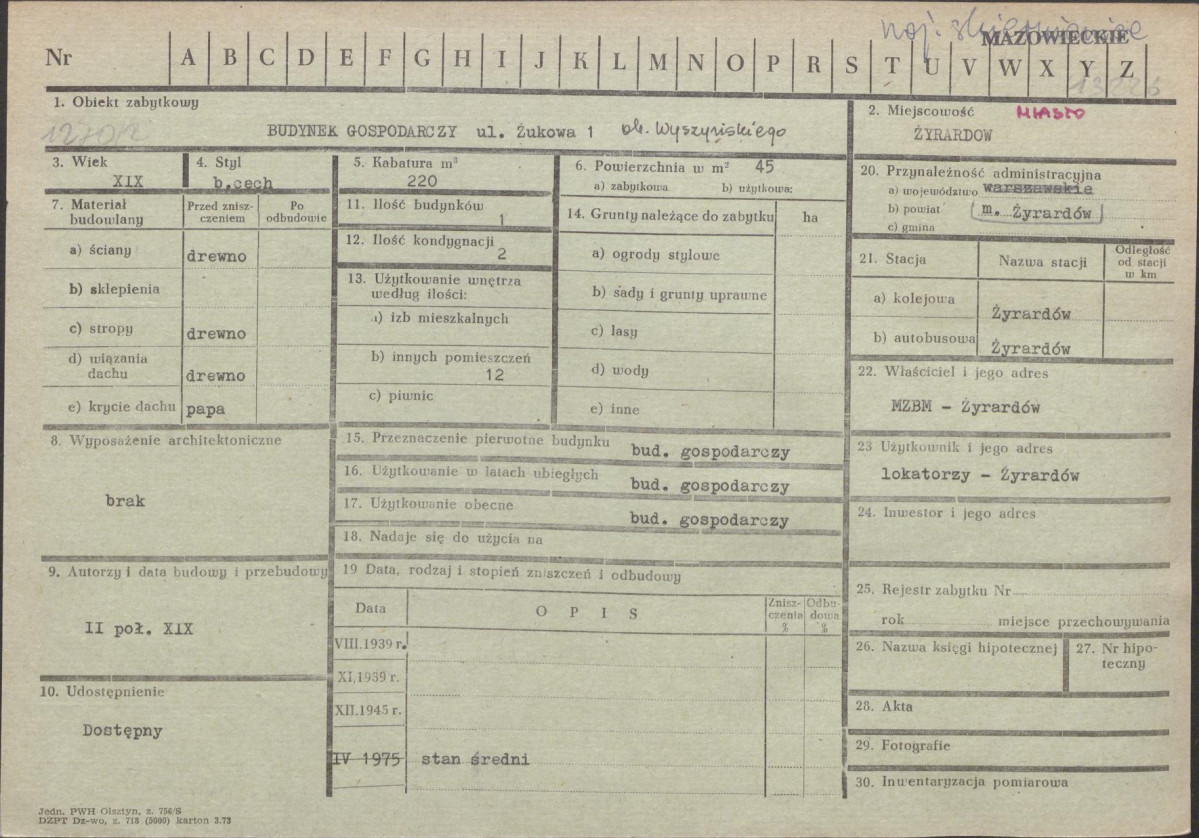 woj. skierniewickie
MAZOWIECKIE
Nr A B C D E F G H I J K L M N O P R S T U V W X Y Z
1. Obiekt zabytkowy
BUDYNEK GOSPODARCZY ul. Żukowa 1 ob. Wyszyńskiego
2. Miejscowość MIASTO
ŻYRARDOW
3. Wiek
XIX
4. Styl
b.cech
5. Kabatura m³
220
6. Powierzchnia w m² 45
a) zabytkowa b) użytkowa:
7. Materiał budowlany
Przed zniszczeniem
Po odbudowie
a) ściany drewno
b) sklepienia
c) stropy drewno
d) wiązania dachu drewno
e) krycie dachu papa
8. Wyposażenie architektoniczne
brak
9. Autorzy i data budowy i przebudowy
II poł. XIX
10. Udostępnienie
Dostępny
11. Ilość budynków
1
12. Ilość kondygnacji
2
13. Użytkowanie wnętrza
według ilości:
a) izb mieszkalnych
b) innych pomieszczeń
12
c) piwnic
14. Grunty należące do zabytku ha
a) ogrody stylowe
b) sady i grunty uprawne
c) lasy
d) wody
e) inne
15. Przeznaczenie pierwotne budynku
bud. gospodarczy
16. Użytkowanie w latach ubiegłych
bud. gospodarczy
17. Użytkowanie obecne
bud. gospodarczy
18. Nadaje się do użycia na
19 Data, rodzaj i stopień zniszczeń i odbudowy
Data OPIS Zniszczenia % Odbudowa %
VIII.1939 r.
XI.1939 r.
XII.1945 r.
IV 1975 stan średni
20. Przynależność administracyjna
a) województwo warszawskie
b) powiat m. Żyrardów
c) gmina
21. Stacja Nazwa stacji Odległość od stacji w km
a) kolejowa Żyrardów
b) autobusowa Żyrardów
22. Właściciel i jego adres
MZBM - Żyrardów
23 Użytkownik i jego adres
lokatorzy - Żyrardów
24. Inwestor i jego adres
25. Rejestr zabytku Nr
rok miejsce przechowywania
26. Nazwa księgi hipotecznej
27. Nr hipoteczny
28. Akta
29. Fotografie
30. Inwentaryzacja pomiarowa
Jedn. PWH Olsztyn, z. 756/S
DZPT Dz-wo, z. 713 (5000) karton 3.73